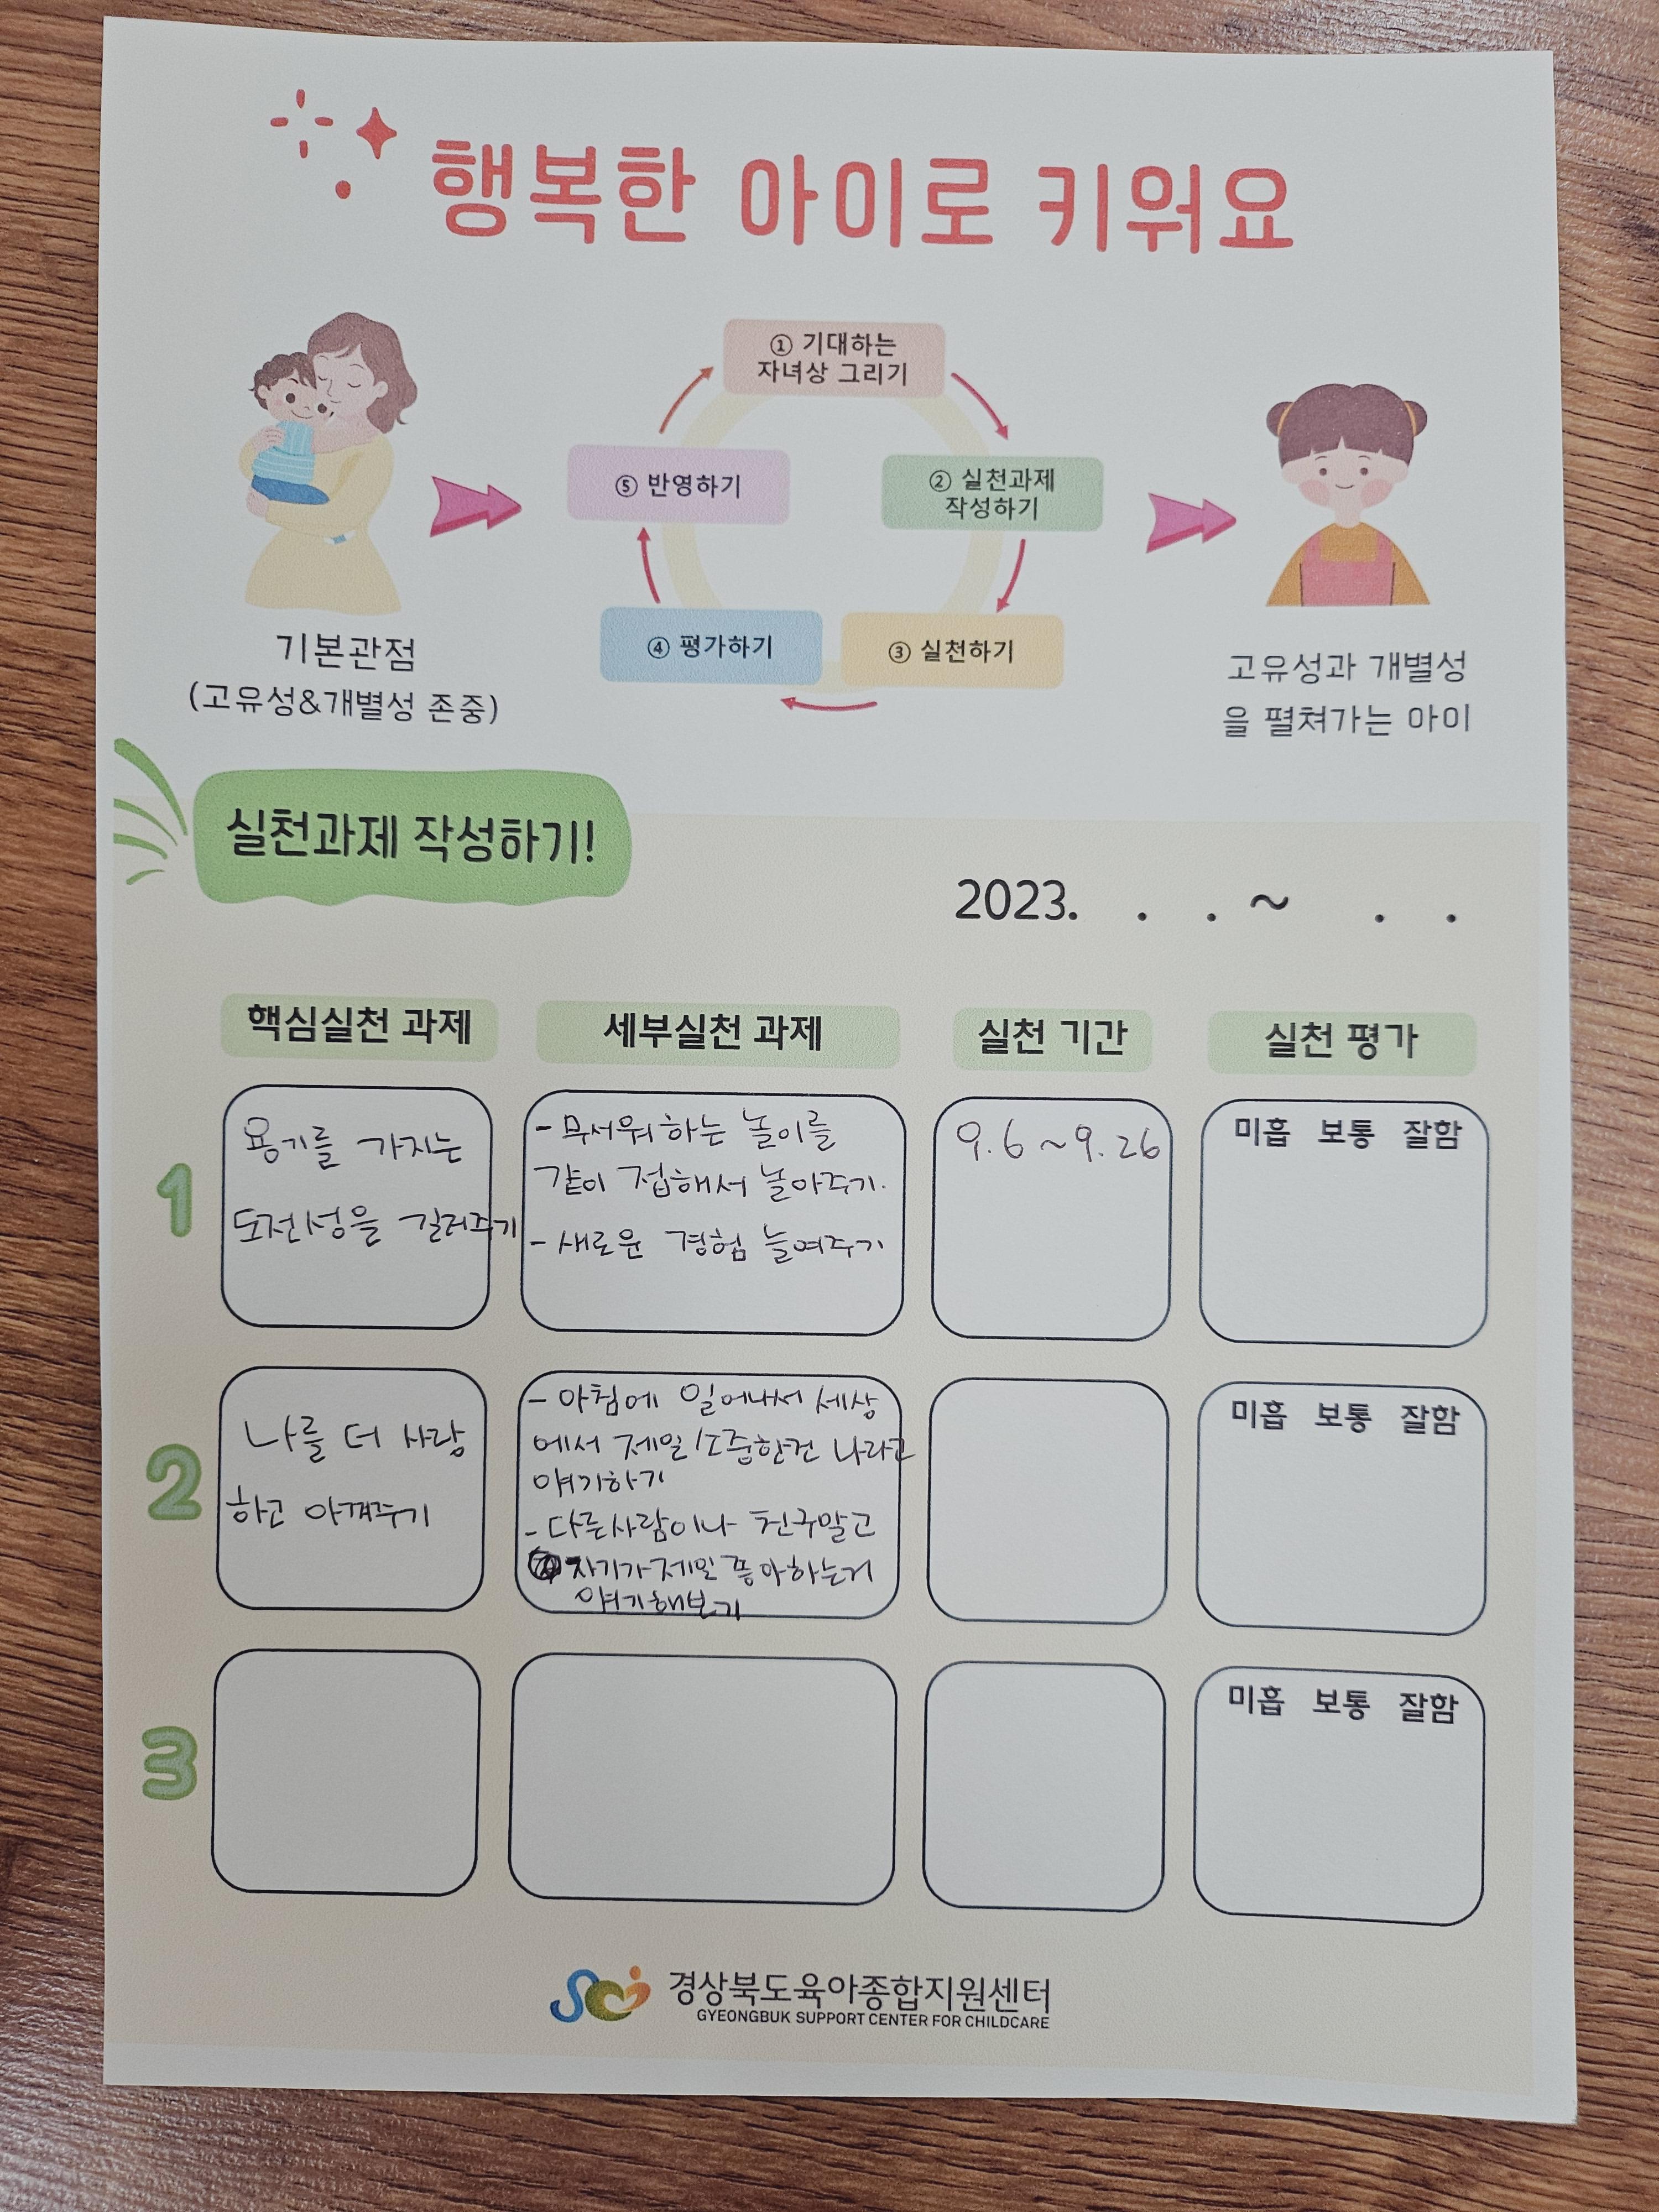 행복한 아이로 키워요
① 기대하는
자녀상 그리기
② 실천과제
작성하기
③ 실천하기
④ 평가하기
⑤ 반영하기
기본관점
(고유성&개별성 존중)
고유성과 개별성
을 펼쳐가는 아이
실천과제 작성하기!
2023. . . ~ . .
핵심실천 과제
세부실천 과제
실천 기간
실천 평가
1
용기를 가지는
도전성을 길러주기
- 무서워하는 놀이를
같이 접해서 놀아주기.
- 새로운 경험 늘여주기
9.6 ~ 9.26
미흡 보통 잘함
2
나를 더 사랑
하고 아껴주기
- 아침에 일어나서 세상
에서 제일 소중한건 나라고
얘기하기
- 다른사람이나 친구말고
자기가 제일 좋아하는거
얘기해보기
미흡 보통 잘함
3
미흡 보통 잘함
경상북도육아종합지원센터
GYEONGBUK SUPPORT CENTER FOR CHILDCARE